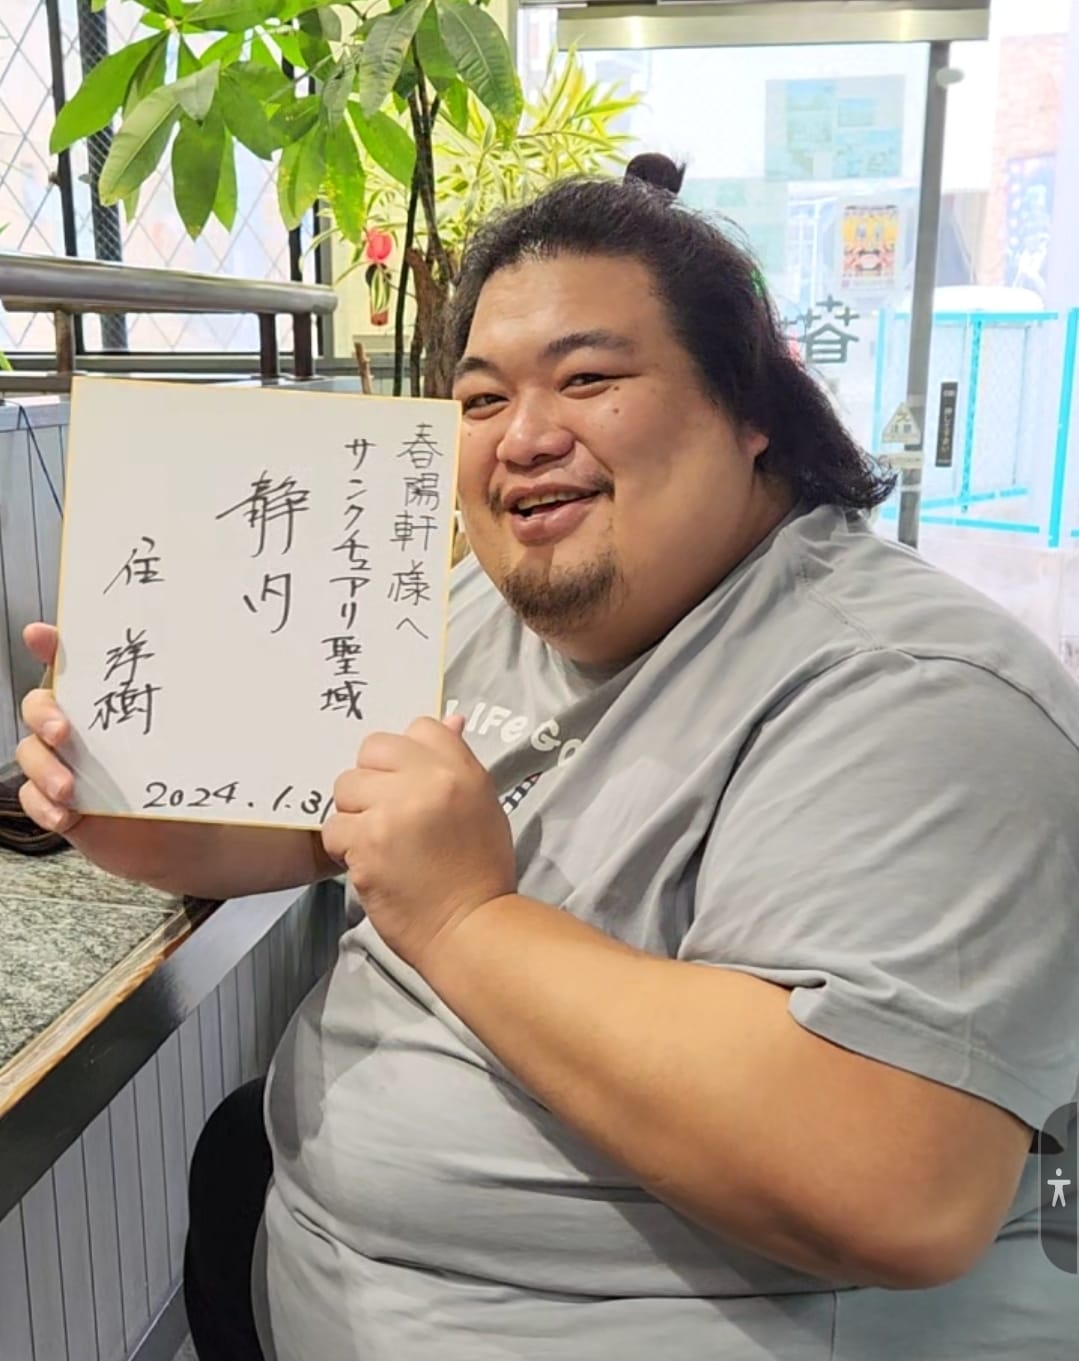 春陽軒様へ
サンクチュアリ聖域
静内
住 洋樹
2024.1.31
LIFe GO